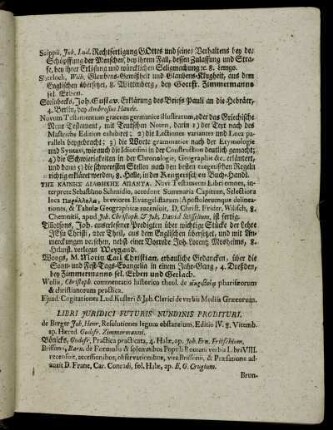 Scippii, Joh. Lud. Rechtfertigung GOttes und seines Verhaltens bey der
Schöpffung der Menschen, bey ihrem Fall, dessen Zulassung und Stra-
fe, bey ihrer Erlösung und würcklichen Seligmachung
Sherlock, Wilh. Glaubens-Gewißheit und Glaubens-Klugheit, aus dem
Englischen übersetzet, 8. Wittenberg, bey Gottfr. Zimmermanns
sel. Erben.
Joh. Gustav. Erklärung des Briefs Pauli an die Hebräer,
4. Berlin, bey Ambrosius Haude.
Novum Testamentum graecum germanice illustratum, oder das Griechische
Neue Testament, mit Teutschen Noten, darin 1) der Text nach der
Millischen Edition exhibiret: 2) die Lectiones variantes und Loca paral-
lela beygebracht: 3) die Worte grammatice nach der Etymologie
und Syntaxi, wie auch die Idiotismi in der Construction deutlich gemacht;
4) die Schwierigkeiten in der Chronologie, Geographia &c. erläutert,
und dann 5) die schweresten Stellen nach den besten exegetischen Regeln
richtig erkläret werden, 8. Halle, in der Rengerischen Buch-Handl.
ΤΗΣ ΚΑΙΝΗΣ ΔΙΑΘΗΚΗΣ ΑΠΑΝΤΑ. Novi Testamenti Libri omnes, in-
terprete Sebastiano Schmidio, accedunt Summaria Capitum, Selectiora
loca Παράλληλα, breviores Evangelistarum Apostolorumque delinea-
tiones, & Tabula Geographica: recensuit D. Christ. Frider. Wilisch, 8.
Chemnitii, apud Joh. Christoph. & Joh. David Stösselium, ist fertig.
Tillotsons, Joh. auserlesener Predigten über wichtige Stücke der Lehre
JEsu Christi, 2ter Theil, aus dem Englischen übersetzt, und mit An-
merckungen versehen, nebst einer Vorrede Joh. Lorenz Mosheims, 8.
Helmst. verlegts Weygand.
Woogs, M. Moritz Carl Christian, erbauliche Gedancken, über die
Sonn- und Fest-Tags-Evangelia in einem Jahr-Gang, 4. Dresden,
bey Zimmermanns sel. Erben und Gerlach.
Wolle, Christoph. commentatio historico theol. de
& christianorum practico.
Ejusd. Cogitationes Lud. Kusteri & Joh. Clerici de verbis Mediis Graecorum.
LIBRI JURIDICI FUTURIS NUNDINIS PRODITURI.
de Berger Joh. Henr. Resolutiones legum obstantium, Editio IV. 8. Vitemb.
ap. Hæred. Godofr. Zimmermanni.
Bönicks, Godofr. Practica practicata, 4. Halæ, ap. Joh. Ern. Fritschium.
Brissonii, Barn. de Formulis & solennibus Populi Romani verbis Libri VIII.
recensuit, accessionibus, observationibus, vita Brissonii, & Præfatione ad-
auxit D. Franc. Car. Conradi, fol. Halæ, ap. E. G. Crugium.
Brun-